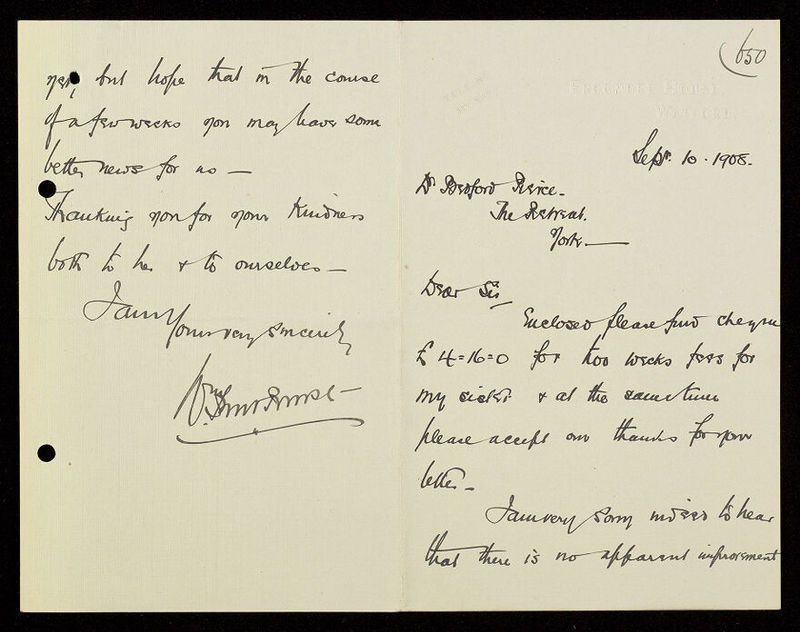 650
Sepr. 10. 1908.
Dr Bedford Pierce.
The Retreat.
York —
Dear Sir,
Enclosed please find cheque
£ 4=16=0 for two weeks fees for
my sister & at the same time
please accept our thanks for your
letter —
I am very sorry indeed to hear
that there is no apparent improvement
yet, but hope that in the course
of a few weeks you may have some
better news for us —
Thanking you for your kindness
both to her & to ourselves —
I am
Yours very sincerely
Wm